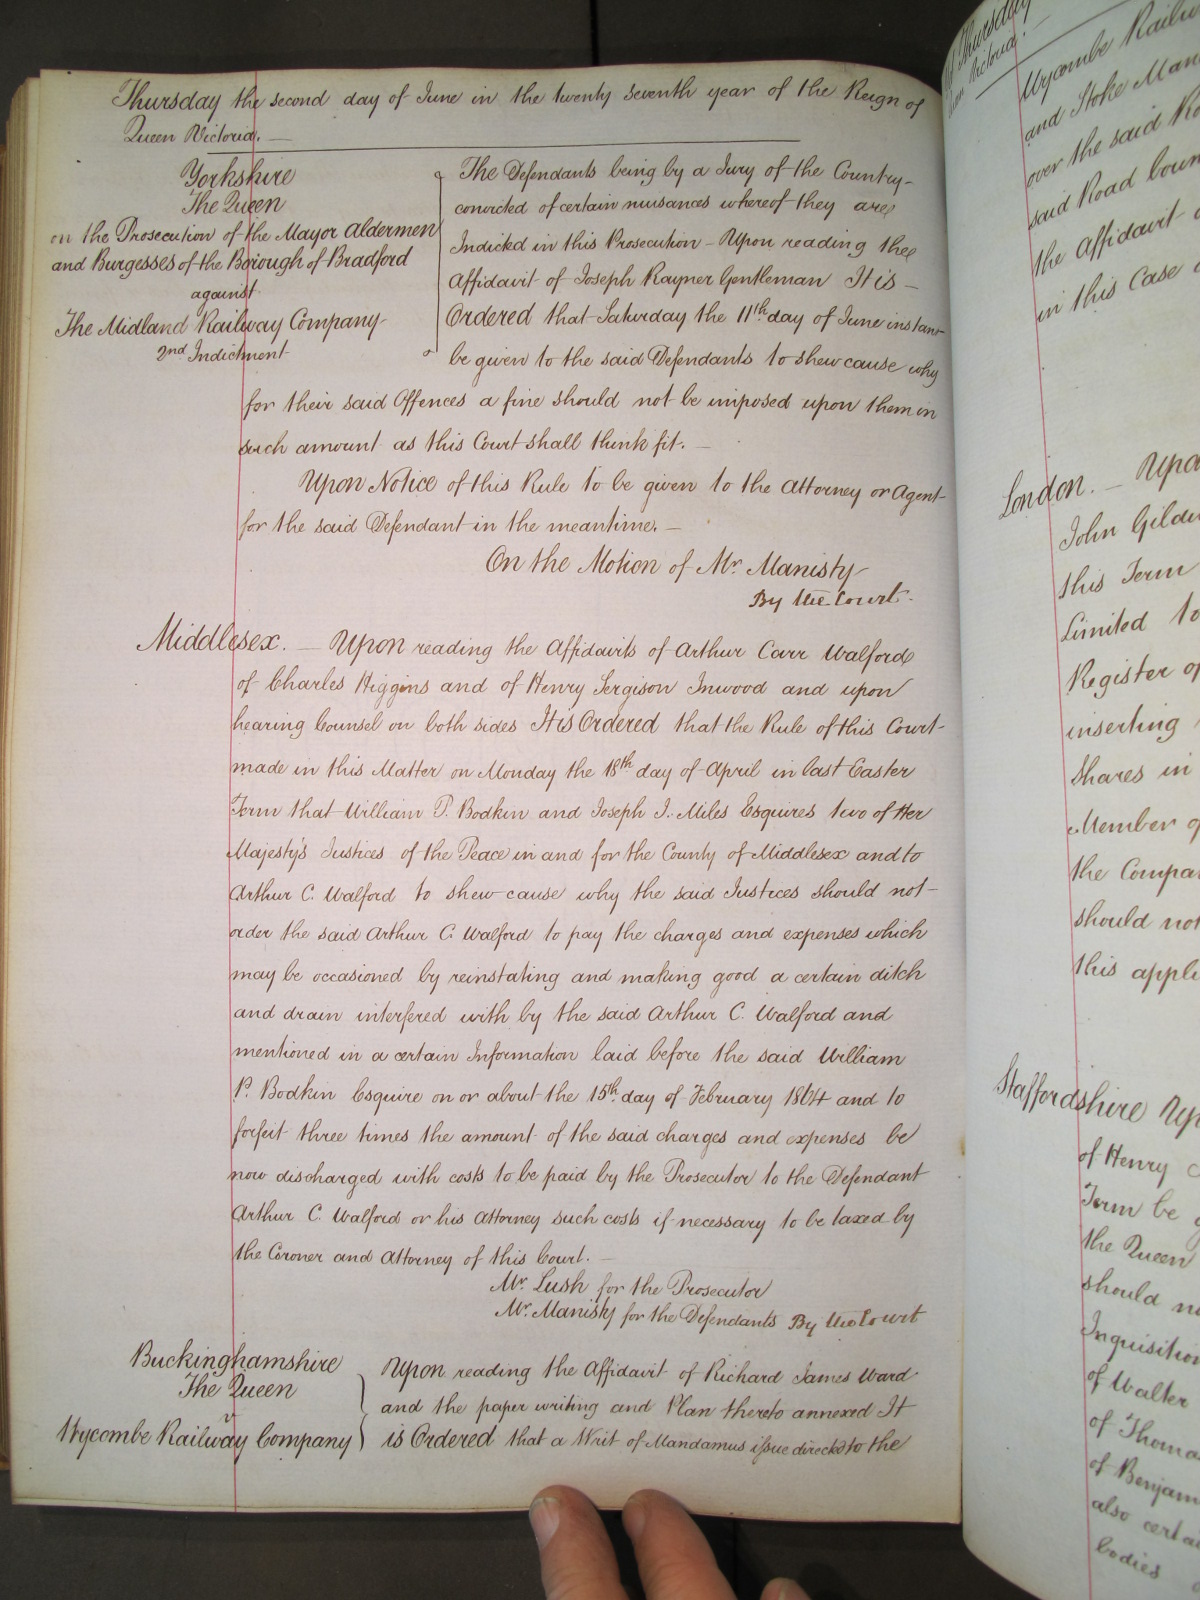 Thursday the second day of June in the twenty seventh year of the Reign of
Queen Victoria. —
Yorkshire
The Queen
on the Prosecution of the Mayor Aldermen
and Burgesses of the Borough of Bradford
against
The Midland Railway Company
2nd Indictment
The Defendants being by a Jury of the Country
convicted of certain nuisances whereof they are
Indicted in this Prosecution – Upon reading the
Affidavit of Joseph Rayner Gentleman It is –
Ordered that Saturday the 11th day of June instant
be given to the said Defendants to shew cause why
for their said Offences a fine should not be imposed upon them in
such amount as this Court shall think fit. —
Upon Notice of this Rule to be given to the Attorney or Agent
for the said Defendant in the meantime. —
On the Motion of Mr. Manisty
By the Court.
Middlesex. — Upon reading the Affidavits of Arthur Carr Walford
of Charles Higgins and of Henry Sergison Inwood and upon
hearing Counsel on both sides It is Ordered that the Rule of this Court
made in this Matter on Monday the 18th day of April in last Easter
Term that William P. Bodkin and Joseph J. Miles Esquires two of Her
Majesty's Justices of the Peace in and for the County of Middlesex and to
Arthur C. Walford to shew cause why the said Justices should not
order the said Arthur C. Walford to pay the charges and expenses which
may be occasioned by reinstating and making good a certain ditch
and drain interfered with by the said Arthur C. Walford and
mentioned in a certain Information laid before the said William
P. Bodkin Esquire on or about the 15th day of February 1864 and to
forfeit three times the amount of the said charges and expenses be
now discharged with costs to be paid by the Prosecutor to the Defendant
Arthur C. Walford or his Attorney such costs if necessary to be taxed by
the Coroner and Attorney of this Court. —
Mr. Lush for the Prosecutor
Mr. Manisty for the Defendants By the Court
Buckinghamshire
The Queen
v
Wycombe Railway Company
Upon reading the Affidavit of Richard James Ward
and the paper writing and Plan thereto annexed It
is Ordered that a Writ of Mandamus issue directed to the
Thursday
Victoria.
Wycombe Railw
and Stoke Man
over the said Ro
said Road boun
the Affidavit
in this Case
London. — Upo
John Gilde
this Term
Limited to
Register of
inserting
Shares in
Member of
the Compa
should not
this appli
Staffordshire Up
of Henry
Term be
the Queen
should n
Inquisition
of Walter
of Thoma
of Benjam
also certa
bodies